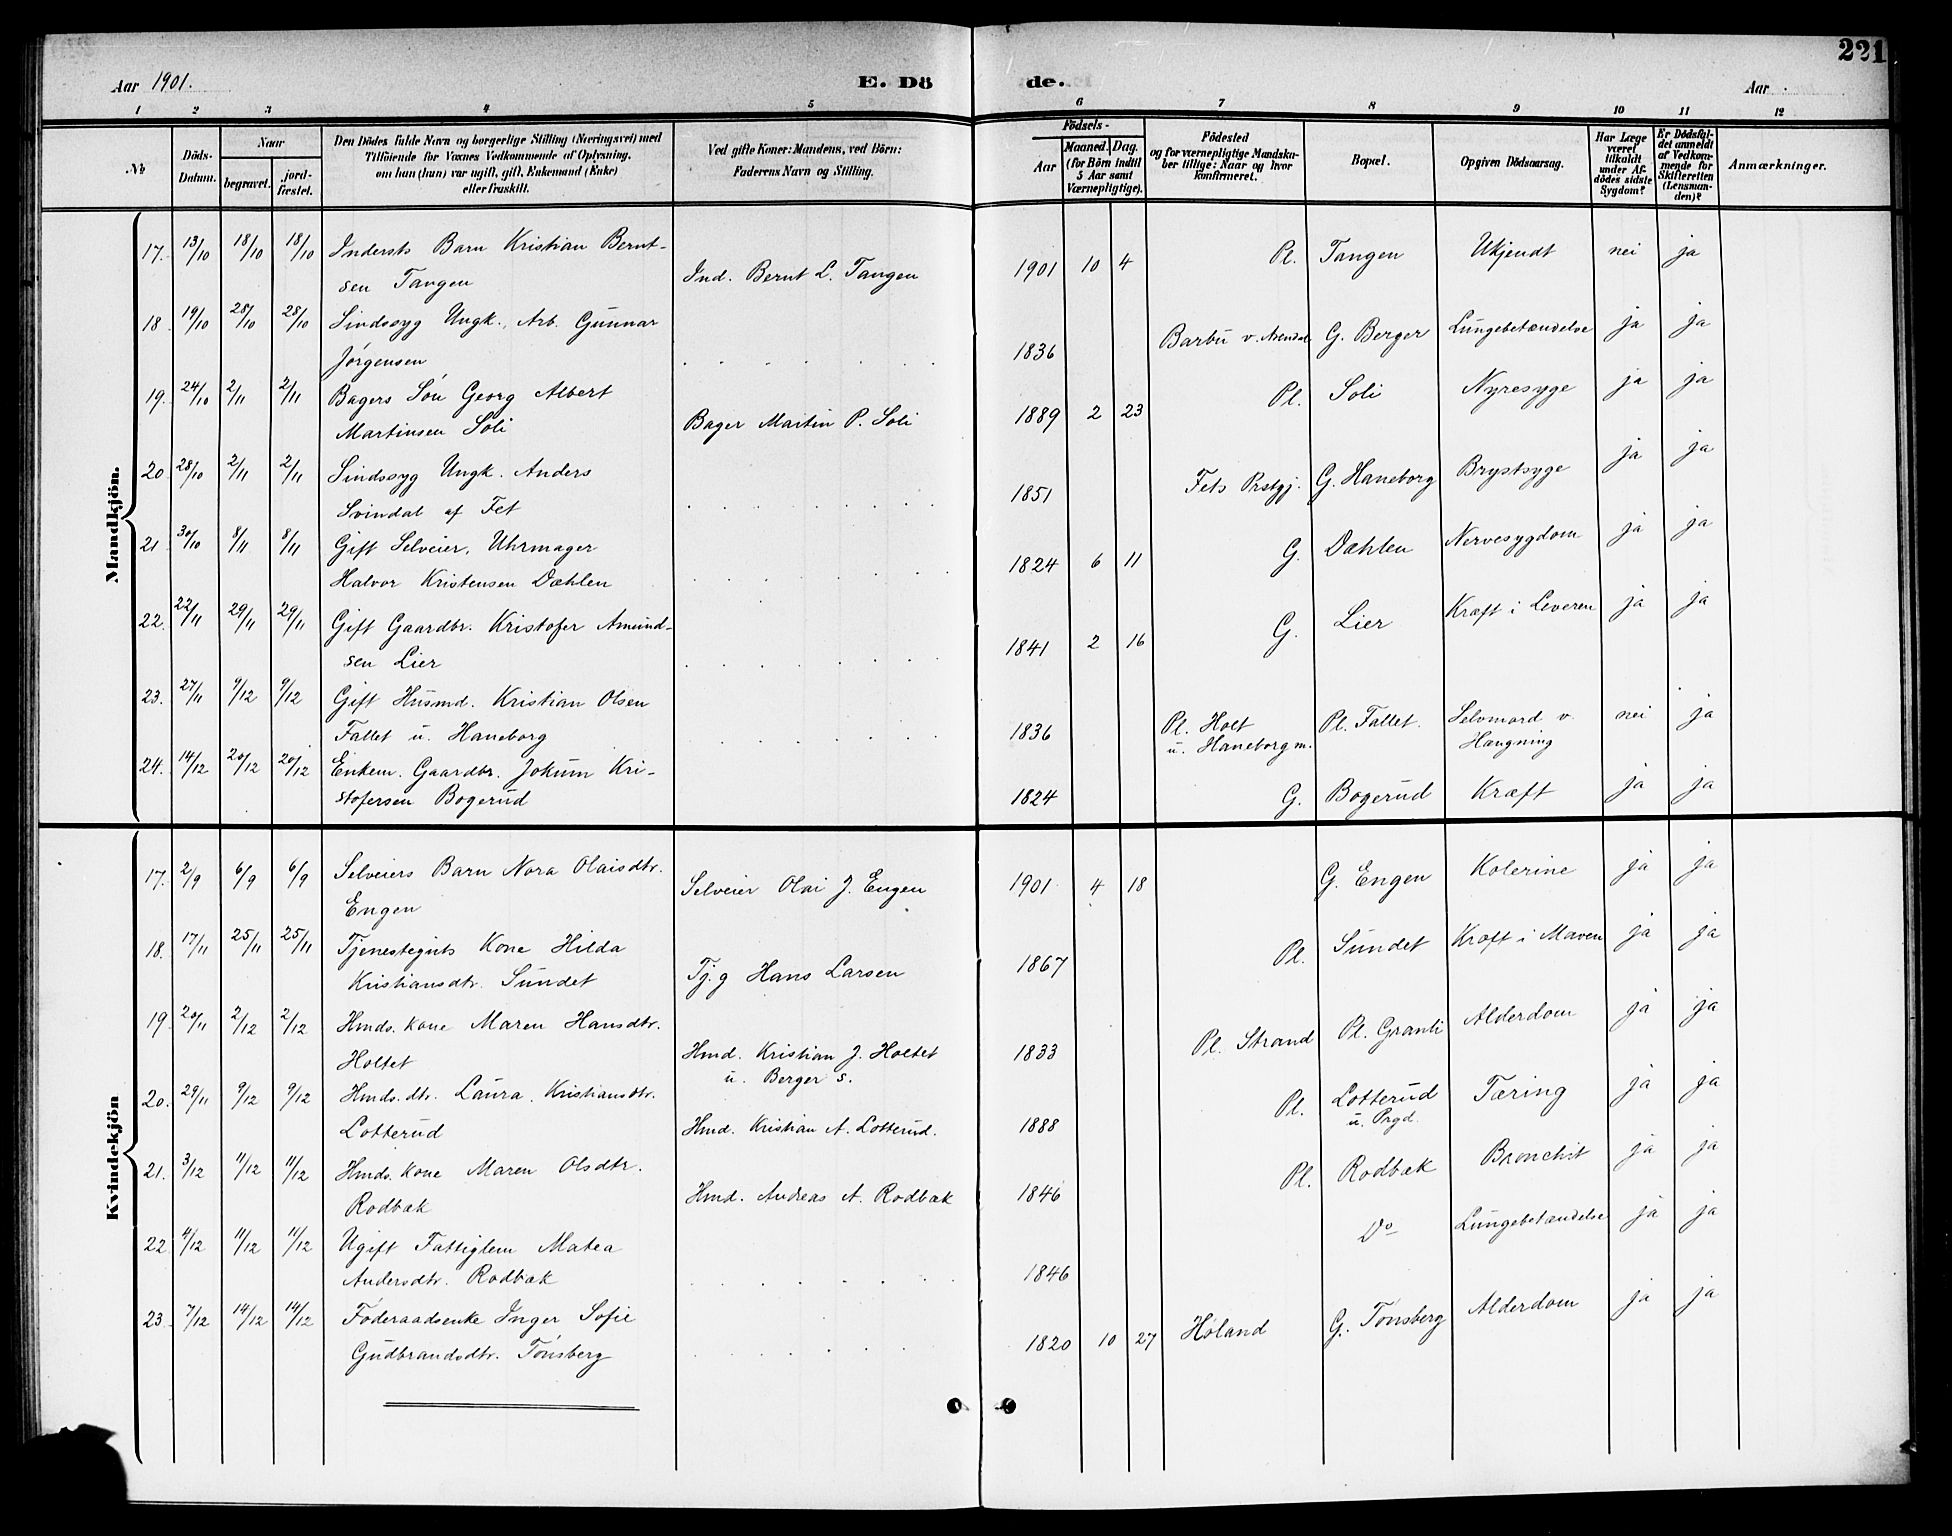 221
Aar 1901. E. Dö de. Aar
1 2 3 4 5 6 7 8 9 10 11 12
No
Döds-Datum.
Naar
begravet. jord-fæstet.
Den Dödes fulde Navn og borgerlige Stilling (Næringsvei) med
Tilföiende for Voxnes Vedkommende af Oplysning,
om han (hun) var ugift, gift, Enkemand (Enke)
eller fraskilt.
Ved gifte Koner: Mandens, ved Börn:
Faderens Navn og Stilling.
Födsels-
Aar Maaned. Dag.
(for Börn indtil
5 Aar samt
Værnepligtige).
Födested
og for værnepligtige Mandska-
ber tillige: Naar og hvor
konfirmeret.
Bopæl.
Opgiven Dödsaarsag.
Har Læge
været
tilkaldt
under Af-
dödes sidste
Sygdom?
Er Dödsfal-
det anmeldt
af Vedkom-
mende for
Skifteretten
(Lensman-
den)?
Anmærkninger.
Mandkjön.
17. 13/10 18/10 18/10 Indersts Barn Kristian Bernt-
sen Tangen Ind. Bernt L. Tangen 1901 10 4 Pl. Tangen Ukjendt nei ja
18. 19/10 28/10 28/10 Sindssyg Ungk., Arb. Gunnar
Jörgensen 1836 Barbu v. Arendal G. Berger Lungebetændelse ja ja
19. 24/10 2/11 2/11 Bagers Sön Georg Albert
Martinsen Soli Bager Martin P. Soli 1889 2 23 Pl. Soli Nyresyge ja ja
20 28/10 2/11 2/11 Sindssyg Ungk. Anders
Svindal af Fet 1851 Fets Prstgj. G. Haneborg Brystsyge ja ja
21 30/10 8/11 8/11 Gift Selveier, Uhrmager
Halvor Kristensen Dæhlen 1824 6 11 G. Dæhlen Nervesygdom ja ja
22. 22/11 29/11 29/11 Gift Gaardbr. Kristofer Amund-
sen Lier 1841 2 16 G. Lier Kræft i Leveren ja ja
23. 27/11 9/12 9/12 Gift Husmd. Kristian Olsen
Fallet u. Haneborg 1836 Pl. Holt
u. Haneborg m. Pl. Fallet. Selvmord v.
Hængning nei ja
24. 14/12 20/12 20/12 Enkem. Gaardbr. Jokum Kri-
stofersen Bogerud 1824 G. Bogerud Kræft ja ja
Kvindekjön
17. 2/9 6/9 6/9 Selveiers Barn Nora Olaisdtr.
Engen Selveier Olai J. Engen 1901 4 18 G. Engen Kolerine ja ja
18. 17/11 25/11 25/11 Tjenesteguts Kone Hilda
Kristiansdtr. Sundet Tj.g Hans Larsen 1867 Pl. Sundet Kræft i Maven ja ja
19. 20/11 2/12 2/12 Hmds. kone Maren Hansdtr.
Holtet Hmd. Kristian J. Holtet
u. Berger s. 1833 Pl. Strand Pl. Granli Alderdom ja ja
20. 29/11 9/12 9/12 Hmds. dtr. Laura Kristiansdtr.
Lotterud Hmd. Kristian A. Lotterud. 1888 Pl. Lotterud
u. Prgd. Tæring ja ja
21. 3/12 11/12 11/12 Hmds. kone Maren Olsdtr.
Rodbæk Hmd. Andreas A. Rodbæk 1846 Pl. Rodbæk Bronchit ja ja
22. 4/12 11/12 11/12 Ugift Fattiglem Matea
Andersdtr. Rodbæk 1846 Do Lungebetændelse ja ja
23. 7/12 14/12 14/12 Föderaadsenke Inger Sofie
Gudbrandsdtr. Tönsberg 1820 10 27 Höland G. Tönsberg Alderdom ja ja